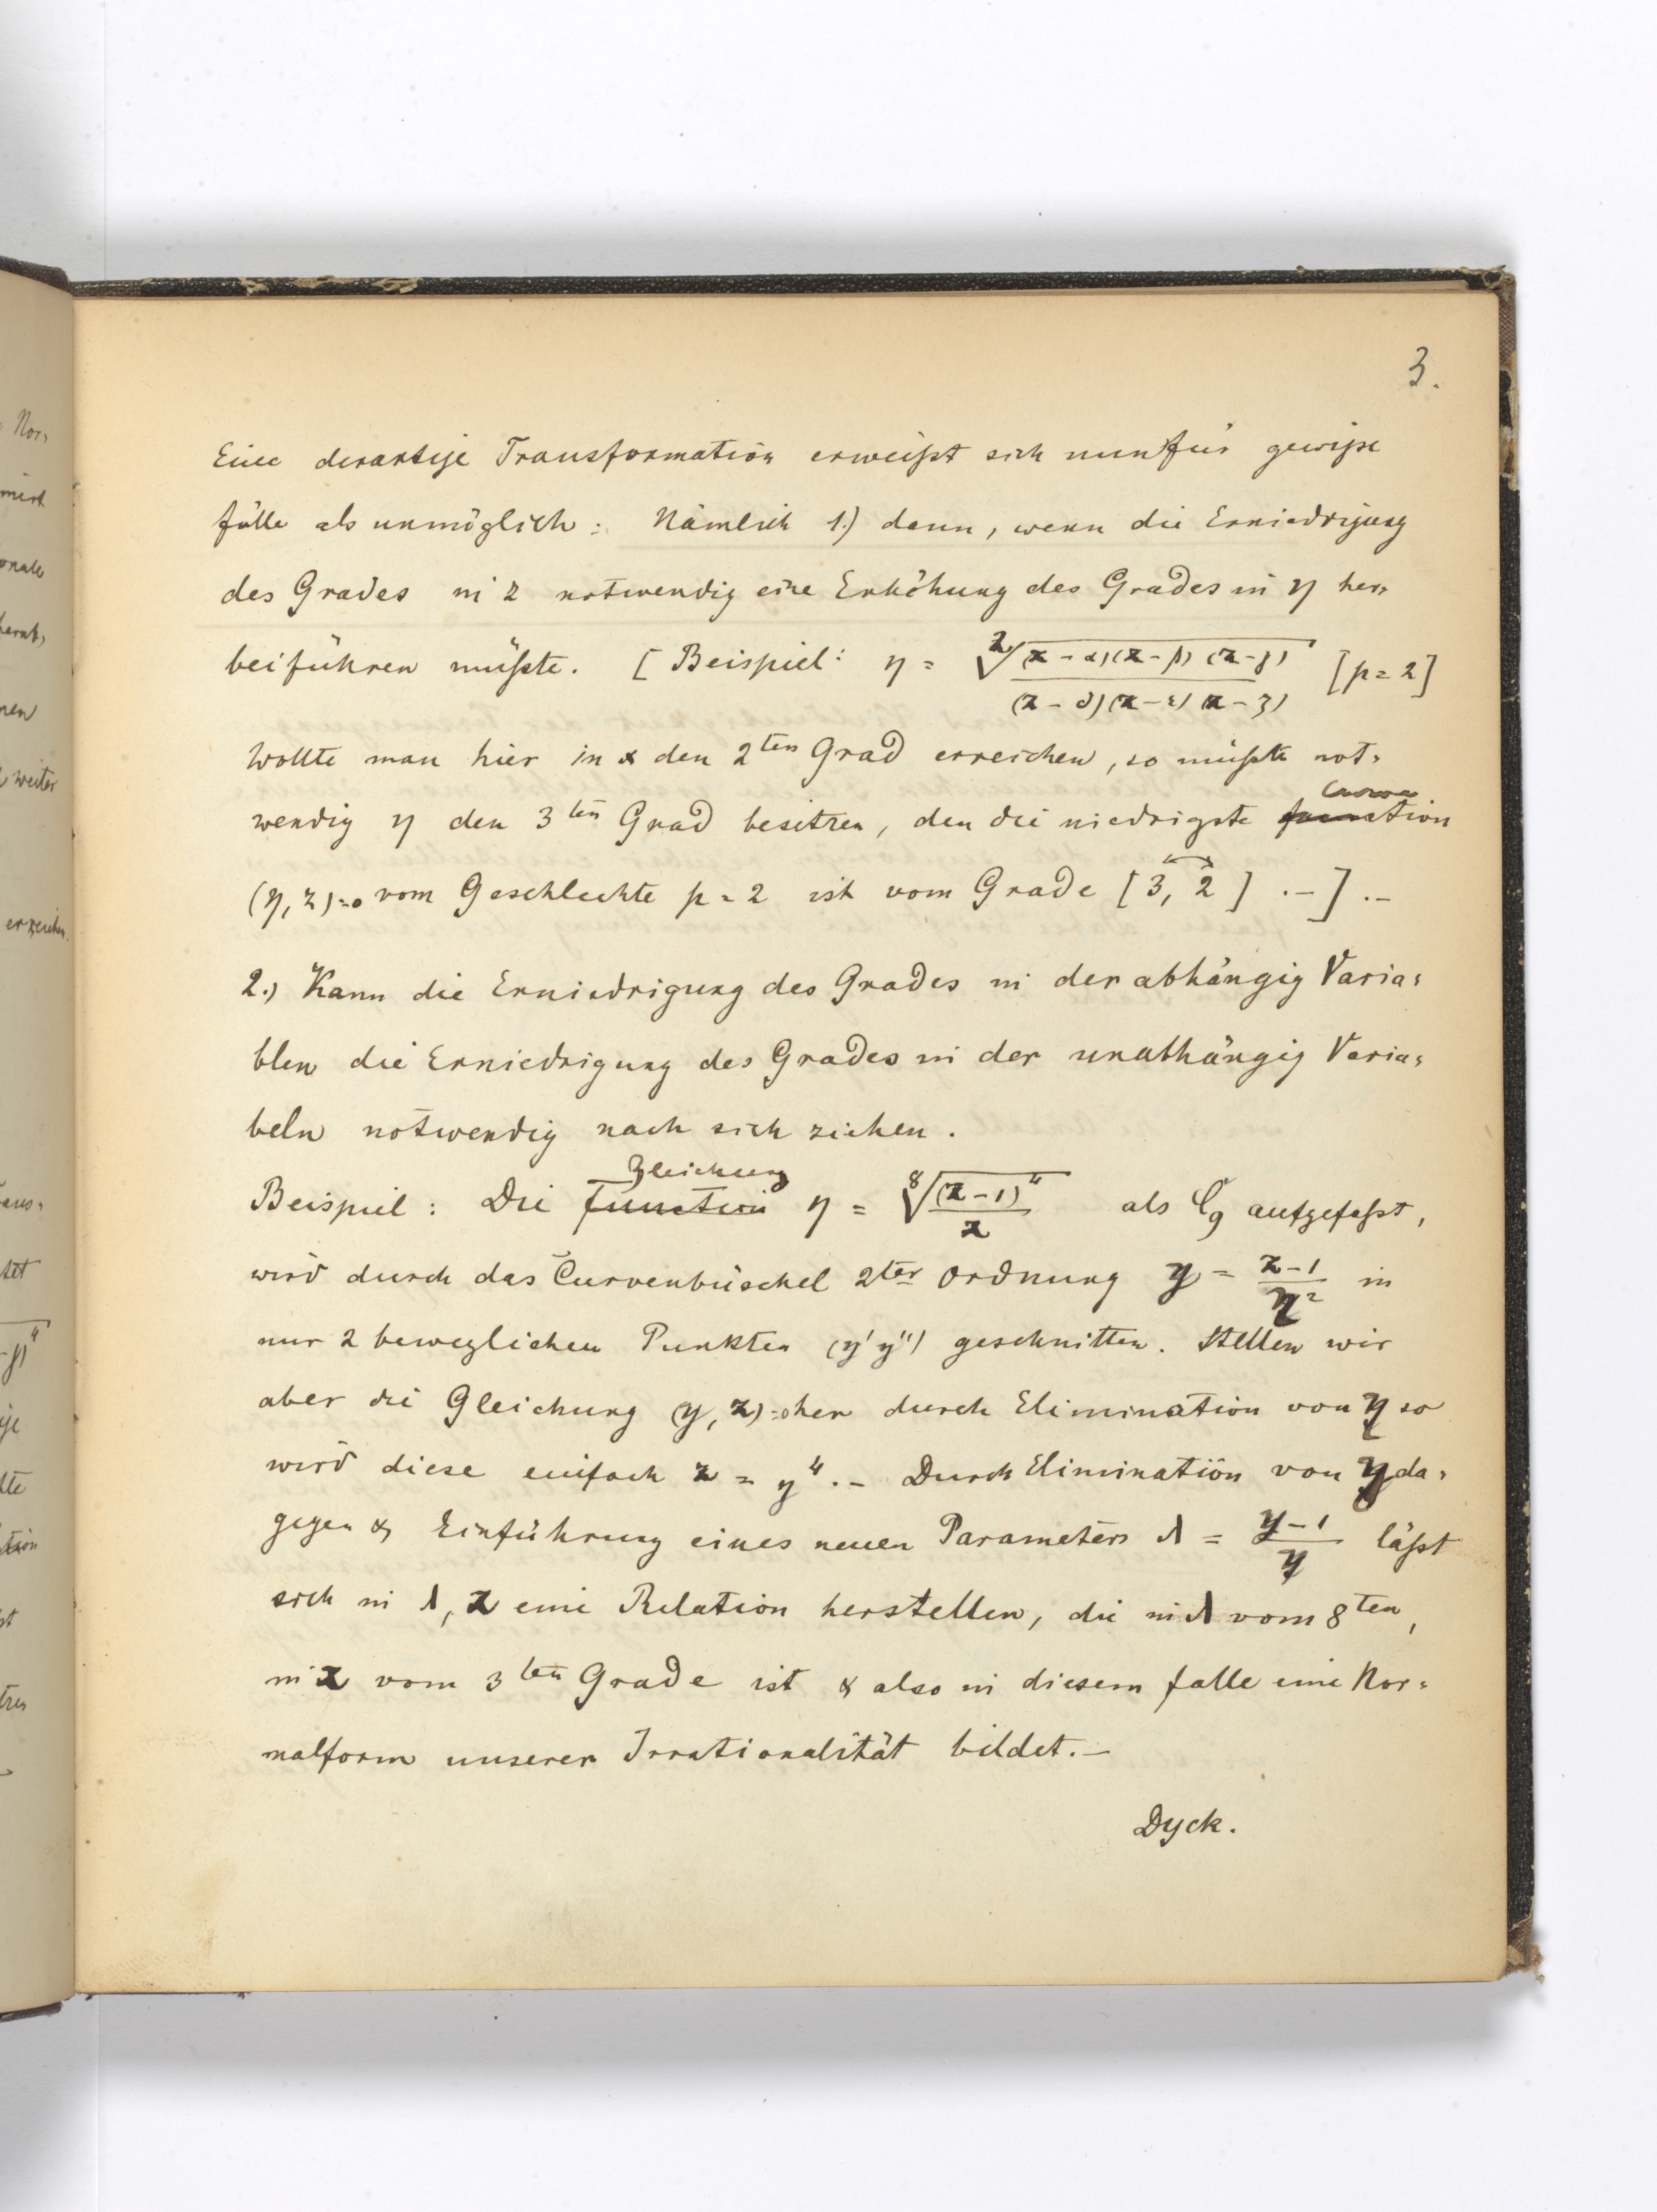 3.
Eine derartige Transformation erweißt sich nun für gewiße
fälle als unmöglich: Nämlich 1.) dann, wenn die Erniedrigung
des Grades in z notwendig eine Erhöhung des Grades in η her-
beiführen müßte. [Beispiel: η = \sqrt[2]{\frac{(z-α)(z-β)(z-γ)}{(z-δ)(z-ε)(z-ζ)}} [p=2]
Wollte man hier in z den 2ten Grad erreichen, so müßte not-
wendig η den 3ten Grad besitzen, den die niedrigste Curve
(η, z)=0 vom Geschlechte p=2 ist vom Grade [3, 2] .–] .–
2.) Kann die Erniedrigung des Grades in der abhängig Varia-
blen die Erniedrigung des Grades in der unabhängig Varia-
beln notwendig nach sich ziehen.
Beispiel: Die Gleichung function η = \sqrt[8]{\frac{(z-1)^4}{z}} als C9 aufgefaßt,
wird durch das Curvenbüschel 2ter Ordnung y = \frac{z-1}{η^2} in
nur 2 beweglichen Punkten (y'y'') geschnitten. Stellen wir
aber die Gleichung (y, z)=0 her durch Elimination von η so
wird diese einfach z = y^4 .– Durch Elimination von y da-
gegen & Einführung eines neuen Parameters λ = \frac{y-1}{y} läßt
sich in λ, z eine Relation herstellen, die in λ vom 8ten,
in z vom 3ten Grade ist & also in diesem falle eine Nor-
malform unserer Irrationalität bildet.–
Dyck.
Nor-
weiter
erreichen.